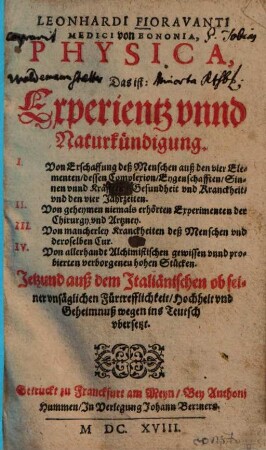 LEONHARDI FIORAVANTI
MEDICI von BONONIA,
PHYSICA,
Das ist:
Experientz vnnd
Naturkündigung.
I. Von Erschaffung deß Menschen auß den vier Ele-
menten/dessen Complexion/Eygenschafften/Sin-
nen vnnd Kräfften/Gesundheit vnd Kranckheit/
vnd den vier Jahrzeiten.
II. Von geheymen niemals erhörten Experimenten der
Chirurgy vnd Artzney.
III. Von mancherley Kranckheiten deß Menschen vnd
deroselben Cur.
IV. Von allerhandt Alchimistischen gewissen vnnd pro-
bierten verborgenen hohen Stücken.
Jetzund auß dem Italiänischen ob sei-
ner vnsäglichen Fürtrefflichkeit/Hochheit vnd
Geheimnuß wegen ins Teutsch
vbersetzt.
Getruckt zu Franckfurt am Meyn/Bey Anthoni
Hummen/In Verlegung Johann Berners.
M DC. XVIII.